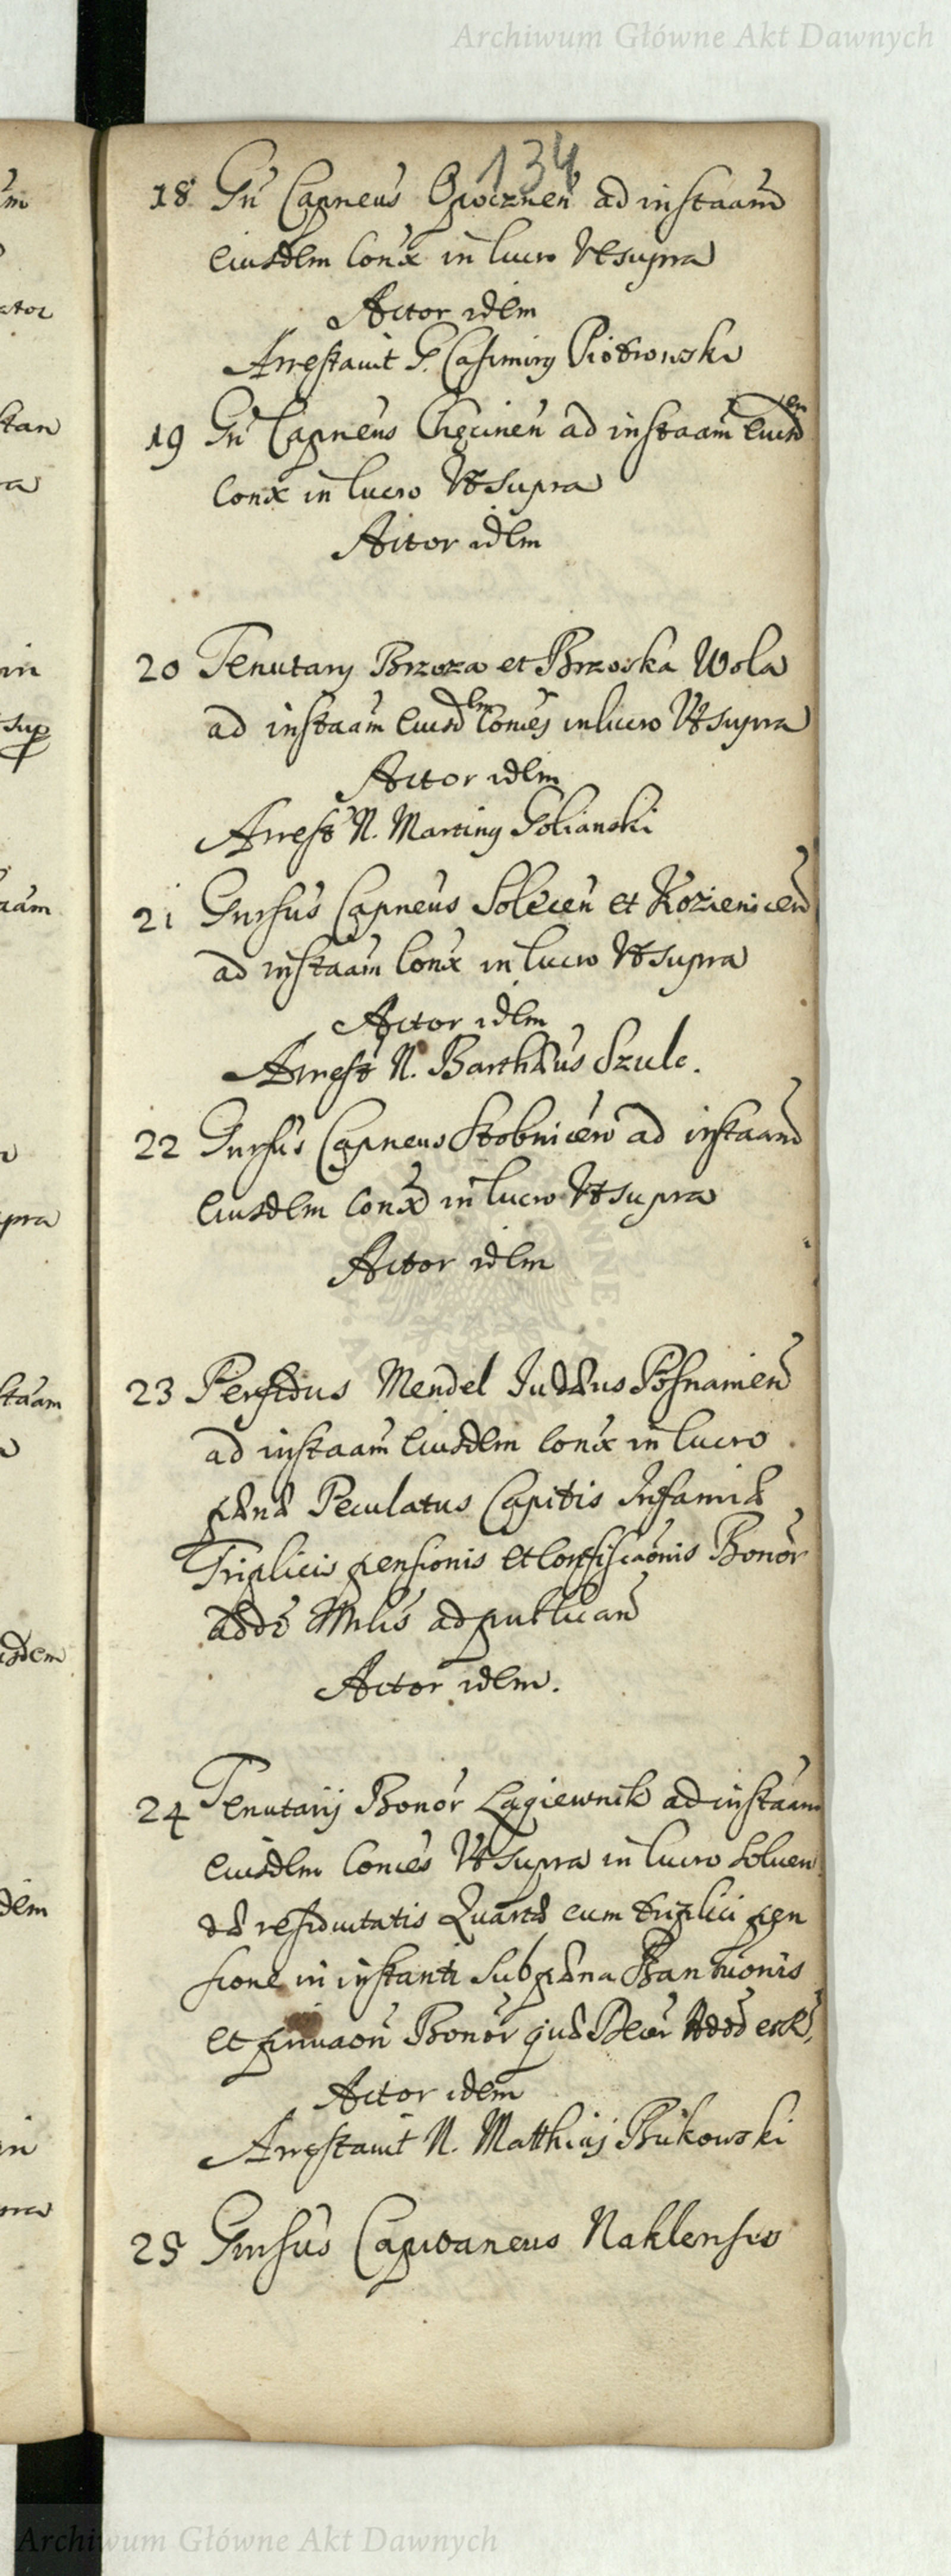 Archiwum Główne Akt Dawnych
134
18 Gn Capneus Opocznen ad instaam
Eiusdem Conx in lucro Vtsupra
Actor idem
Arrestavit G. Casimirg Piotrowski
19 Gn Capneus Chęcinen ad instaam Eiusdem
Conx in lucro Vtsupra
Actor idem
20 Tenutary Brzoza et Brzozka Wola
ad instaam Eiusdem Comes in lucro Vtsupra
Actor idem
Arrest N. Marting Golianski
21 Gnrsus Capneus Solecen et Kozienicen
ad instaam Conx in lucro Vtsupra
Actor idem
Arrest N. Barthæus Szulc.
22 Gnrsus Capneus Stobnicen ad instaam
Eiusdem Conx in lucro Vtsupra
Actor idem
23 Perfidus Mendel Judæus Posnanien
ad instaam Eiusdem Conx in lucro
pænæ Peculatus Capitis Infamiæ
Triplicis pensionis et Confiscaonis Bonor
ad publican
Actor idem.
24 Tenutarij Bonor Łagiewnik ad instaam
Eiusdem Comes Vtsupra in lucro Solven
dæ residuitatis Quartæ cum triplici pen
sione in instanti sub pæna Bannitionis
et privaon Bonor
Actor idem
Arrestavit N. Matthias Bukowski
25 Gnrsus Capitaneus Naklensis
Archiwum Główne Akt Dawnych